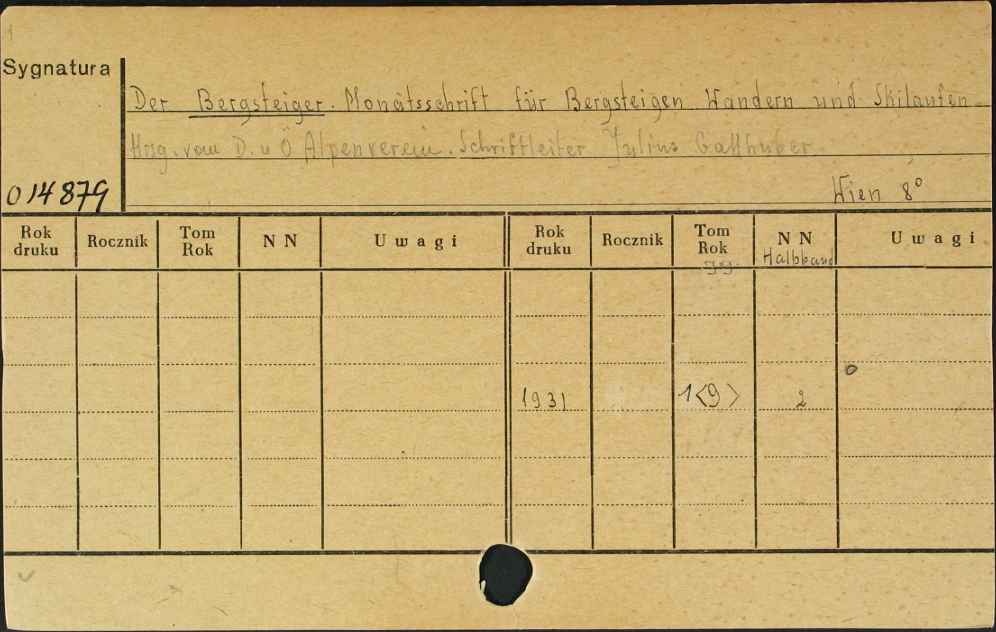 Sygnatura
Der Bergsteiger. Monatsschrift für Bergsteigen Wandern und Skilaufen.
Hrsg. vom D. u Ö Alpenverein. Schriftleiter Julius Gallhuber.
014879
Wien 8°
Rok druku Rocznik Tom Rok NN Uwagi Rok druku Rocznik Tom Rok NN Uwagi
Jg. Halbband
1931 1<9> 2